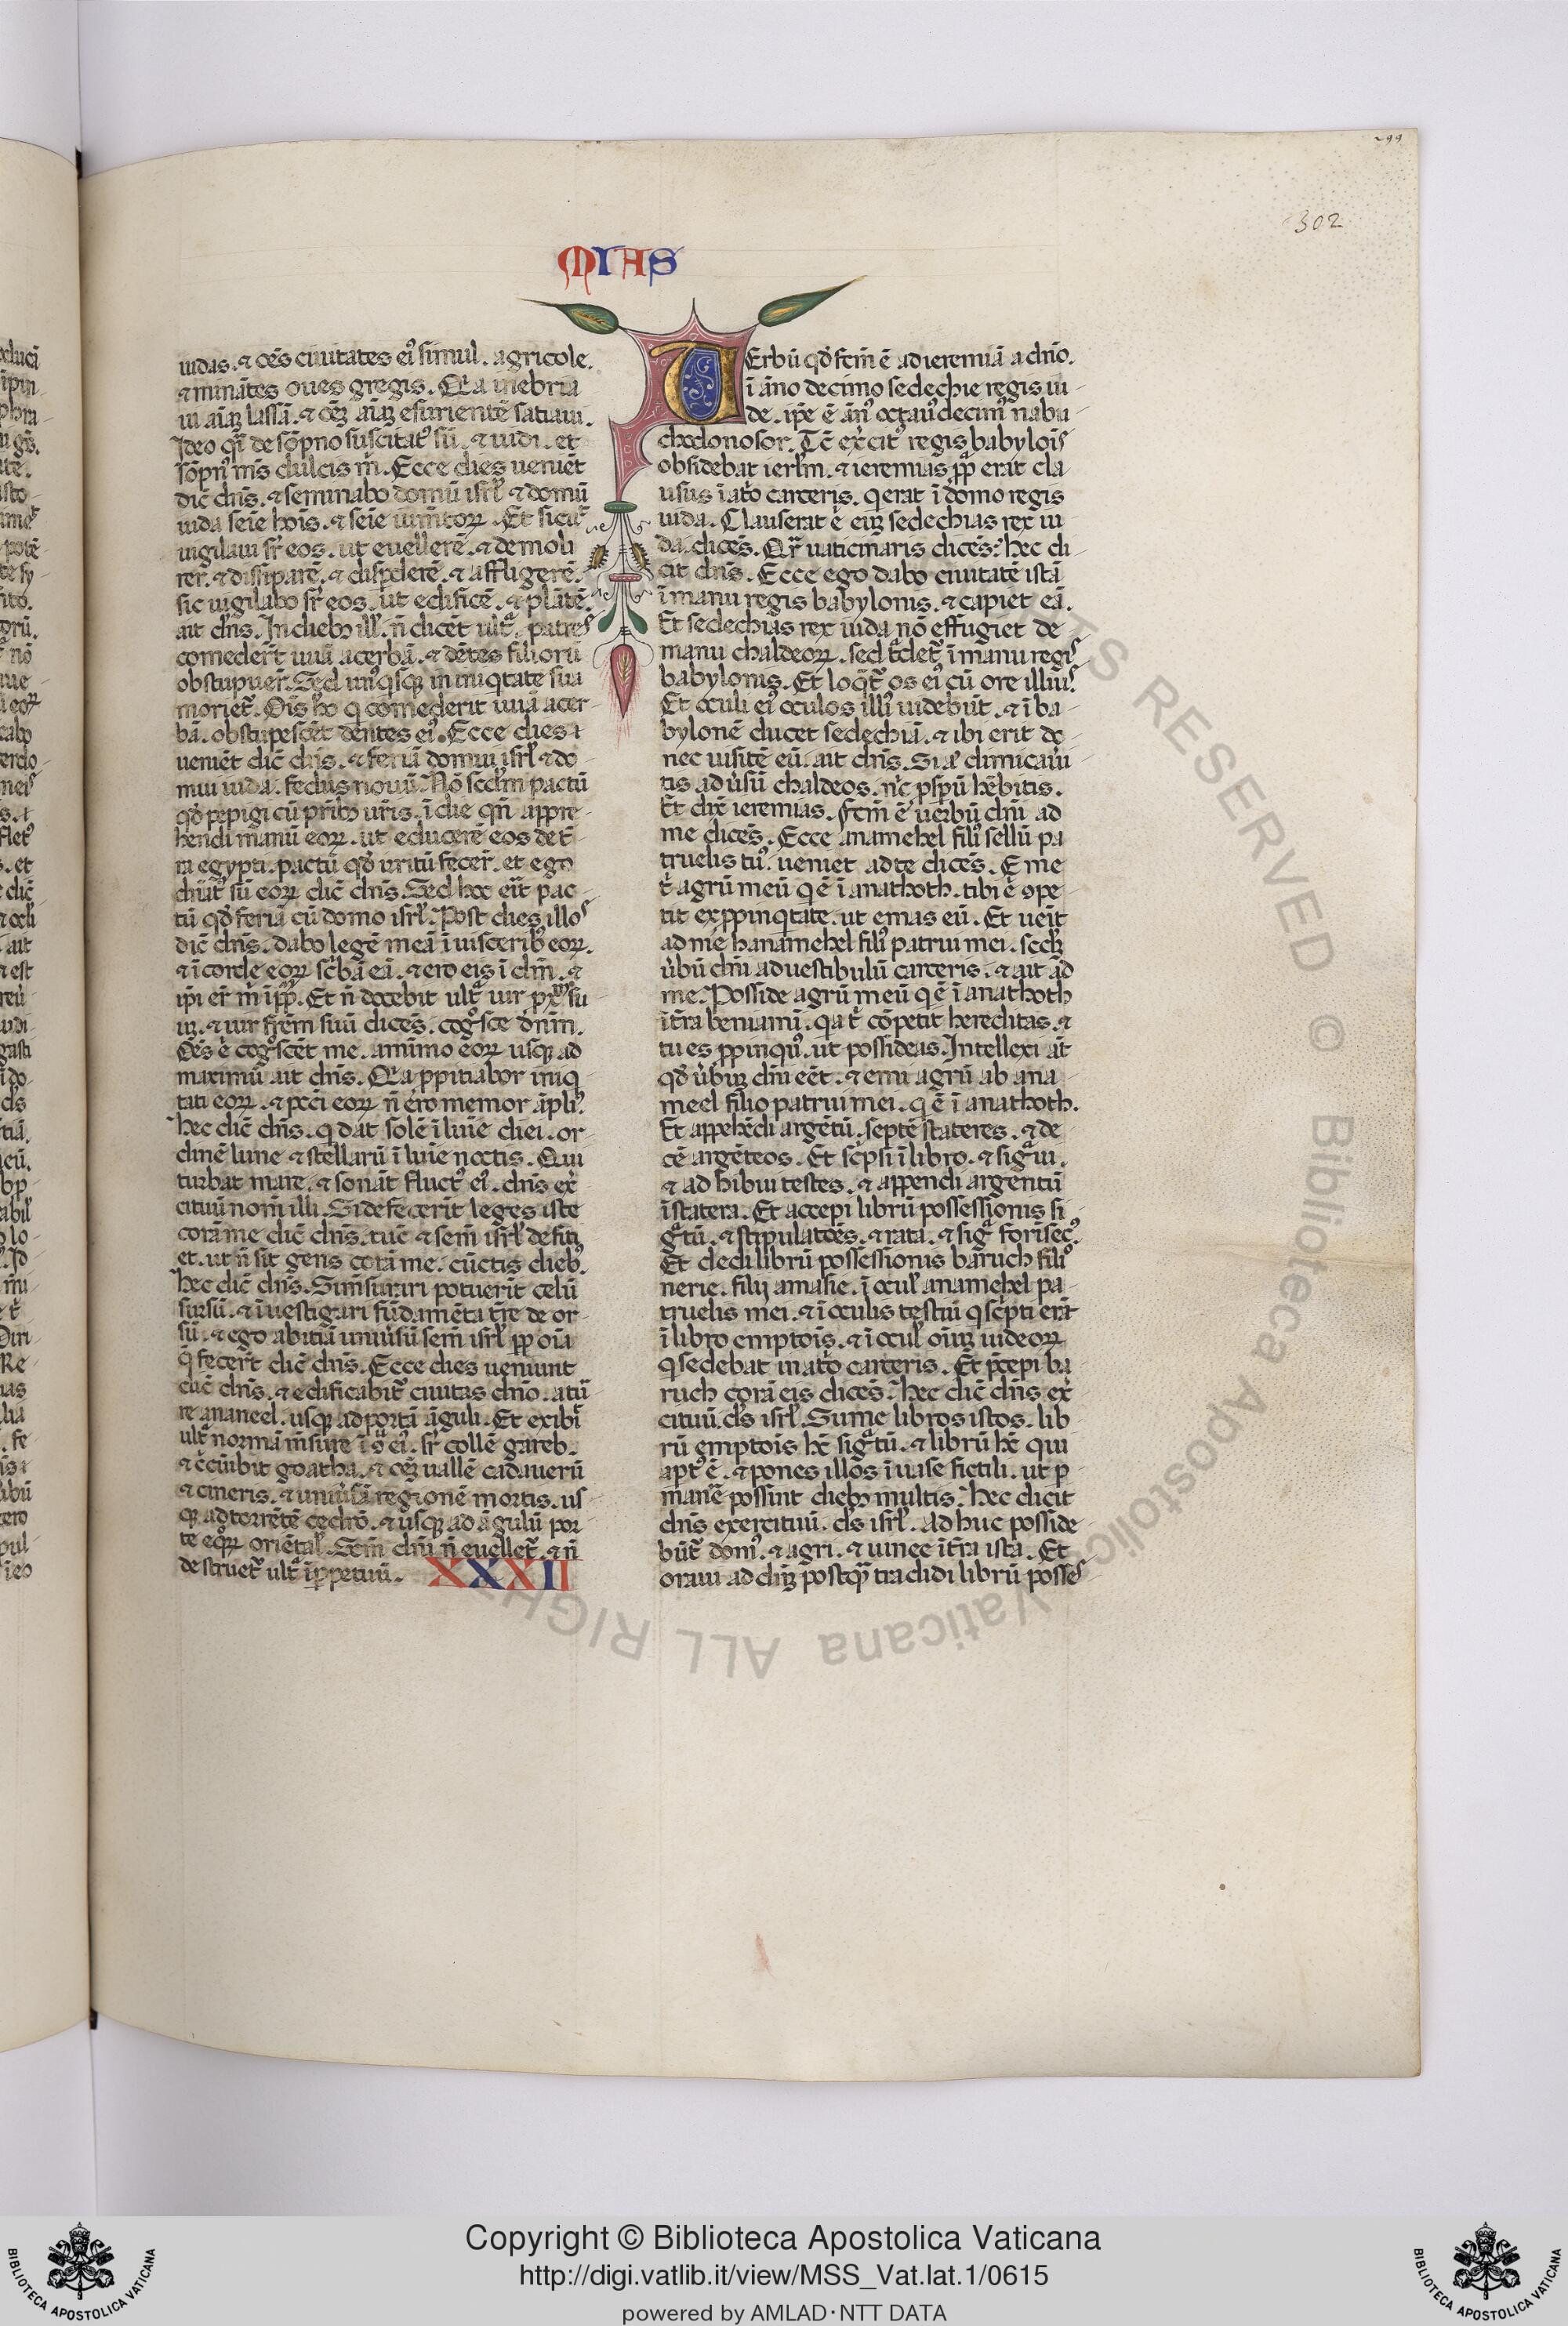 299
302
MIAS
iudas. ⁊ oēs ciuitates eiꝰ simul. agricole.
⁊ minātes oues gregis. Qia inebria
ui aīaȝ lassā. ⁊ oēȝ aīaȝ esurientē satiaui.
Ideo qͥ de sōpno suscitatꝰ sū. ⁊ uidi. et
sōpnꝰ mꝰ dulcis m̄. Ecce dies ueniēt
dic̄ dn̄s. ⁊ seminabo domū isrl̄ ⁊ domū
iuda seīe hoīs. ⁊ seīe iumītoꝝ. Et sicut̄
uigilaui sr̄ eos. ut euellerē. ⁊ demoli
rer. ⁊ dissiparē. ⁊ disꝑderē. ⁊ affligerē.
sic uigilabo sr̄ eos. ut edificē. ⁊ plātē.
ait dn̄s. In diebȝ ill̄. n̄ dicēt ult̄. patres
comeder̄t uuā acerbā. ⁊ dētes filiorū
obstupuer̄. Sed unꝰqsqȝ in iniqtate sua
moriet̄. Oīs hō q comederit uuā acer-
bā. obstupescēt dentes eiꝰ. Ecce dies
ueniēt dic̄ dn̄s. ⁊ feriā domui isrl̄ ⁊ do-
mui iuda. fedus nouū. Nō scd̄m pactū
qd̄ pepigi cū prībȝ ur̄is. ī die qn̄ appre-
hendi manū eoꝝ. ut educerē eos de t̄-
ra egypti. pactū qd̄ irritū fecer̄. et ego
dn̄atꝰ sū eoꝝ dic̄ dn̄s. Sed hoc er̄it pac-
tū qd̄ feriā cū domo isrl̄. Post dies illos
dic̄ dn̄s. dabo legē meā ī uisceribꝰ eoꝝ.
⁊ ī corde eoꝝ sc̄bā eā. ⁊ ero eis ī dm̄. ⁊
ip̄i er̄t m̄ ī pp̄lm. Et n̄ docebit ult̄ uir pxⁱᵐ su-
ū. ⁊ uir fr̄em suū dicēs. cogͦsce dn̄m.
Oēs .n. cogͦscēt me. a minimo eoꝝ usqȝ ad
maximū ait dn̄s. Qia ꝓpitiabor iniq-
tati eoꝝ. ⁊ pcc̄i eoꝝ n̄ ero memor āpliꝰ.
hec dic̄ dn̄s. q dat solē ī luīe diei. or-
dinē lune ⁊ stellarū ī luīe noctis. Qui
turbat mare. ⁊ sonāt fluctꝰ eiꝰ. dn̄s ex̄
cituū nom̄ illi. Si defecerīt leges iste
corā me dic̄ dn̄s. tūc ⁊ sem̄ isrl̄ defiti
et. ut n̄ sit gens corā me. cūctis diebꝰ.
hec dic̄ dn̄s. Si mēsurari potuerīt celū
sursū. ⁊ īuestigari fūdamēta tr̄e de or-
sū. ⁊ ego abitiā uniūsū sem̄ isrl̄ ꝓp oīa
q̄ fecer̄t dic̄ dn̄s. Ecce dies ueniunt
dic̄ dn̄s. ⁊ edificabit̄ ciuitas dn̄o. a tur̄
re ananeel. usqȝ ad portā āguli. Et exibit̄
ult̄ normā m̄sure ī ꝯ̄ eiꝰ. sr̄ collē gareb.
⁊ c̄cuībit goatha. ⁊ oēȝ uallē cadauerū
⁊ cineris. ⁊ uniūsā regionē mortis. us-
qȝ ad torrētē cedrō. ⁊ usqȝ ad āgulū por-
te eqoꝝ oriētal̄. Sc̄m dn̄i n̄ euellet̄. ⁊ n̄
destruet̄ ult̄ ī ꝑpetuū. XXXII
UErbū qd̄ fcm̄ ē ad ieremiā a dn̄o.
ī āno decimo sedechie regis iu-
de. ip̄e ē ānꝰ octauꝰ decimꝰ nabu-
chodonosor. Tc̄ ex̄citꝰ regis babylois
obsidebat ierl̄m. ⁊ ieremias pp̄ erat cla
usus ī atō carceris. q erat ī domo regis
iuda. Clauserat .n. euȝ sedechias rex iu
da. dicēs. Qr̄ uaticinaris dicēs: hec di-
cit dn̄s. Ecce ego dabo ciuitatē istā
ī manu regis babylonis. ⁊ capiet eā.
Et sedechias rex iuda nō effugiet de
manu chaldeoꝝ. sed t̄det̄ ī manu regis
babylonis. Et loqt̄ os eiꝰ cū ore illiuꝰ.
Et oculi eiꝰ oculos illiꝰ uidebūt. ⁊ ī ba-
bylonē ducet sedechiā. ⁊ ibi erit do-
nec uisitē eū. ait dn̄s. Si aꝰ dimicaūi-
tis aduͥsū chaldeos. nc̄ pspū hēbitis.
Et dix̄ ieremias. Fcm̄ ē uerbū dn̄i ad
me dicēs. Ecce anamehel filiꝰ sellū pa
truelis tuꝰ. ueniet ad te dicēs. Eme
t̄ agrū meū q ē ī anathoth. tibi .n. ꝯpe-
tit ex ꝓpinqtate. ut emas eū. Et uēit
ad me hanamehel filiꝰ patrui mei. scd̄ȝ
ūbū dn̄i ad uestibulū carceris. ⁊ ait ad
me. Posside agrū meū q ē ī anathoth
ī t̄ra beniamī. qa t̄ cōpetit hereditas. ⁊
tu es ꝓpinquꝰ. ut possideas. Intellexi at̄
qd̄ ūbuȝ dn̄i eēt. ⁊ emi agrū ab ana-
meel filio patrui mei. q ē ī anathoth.
Et appēdi argētū. septē stateres. ⁊ de-
cē argēteos. Et sc̄psi ī libro. ⁊ sigͣui.
⁊ adhibui testes. ⁊ appendi argentū
ī statera. Et accepi librū possessionis si-
gͣtū. ⁊ stipulatōēs. ⁊ rata. ⁊ sigͣ forīsecꝰ.
Et dedi librū possessionis baruch filiꝰ
nerie. filij amasie. ī ocul̄ anamehel pa-
truelis mei. ⁊ ī oculis testiū q sc̄pti erāt
ī libro emptoīs. ⁊ ī ocul̄ oīuȝ iudeoꝝ
q sedebāt in atō carceris. Et p̄cepi ba
ruch corā eis dicēs. hec dic̄ dn̄s ex̄
cituū. ds̄ isrl̄. Sume libros istos. lib
rū emptoīs hc̄ sigͣtū. ⁊ librū hc̄ qui
aptꝰ ē. ⁊ pones illos ī uase fictili. ut ꝑ
manē possint diebȝ multis. hec dicit
dn̄s exercituū. ds̄ isrl̄. Adhuc posside-
būt̄ domꝰ. ⁊ agri. ⁊ uinee ī t̄ra ista. Et
oraui ad dn̄ȝ postqͣ tradidi librū posses
Copyright © Biblioteca Apostolica Vaticana
http://digi.vatlib.it/view/MSS_Vat.lat.1/0615
powered by AMLAD·NTT DATA
BIBLIOTECA APOSTOLICA VATICANA
BIBLIOTECA APOSTOLICA VATICANA
Biblioteca Apostolica Vaticana ALL RIGHTS RESERVED ©